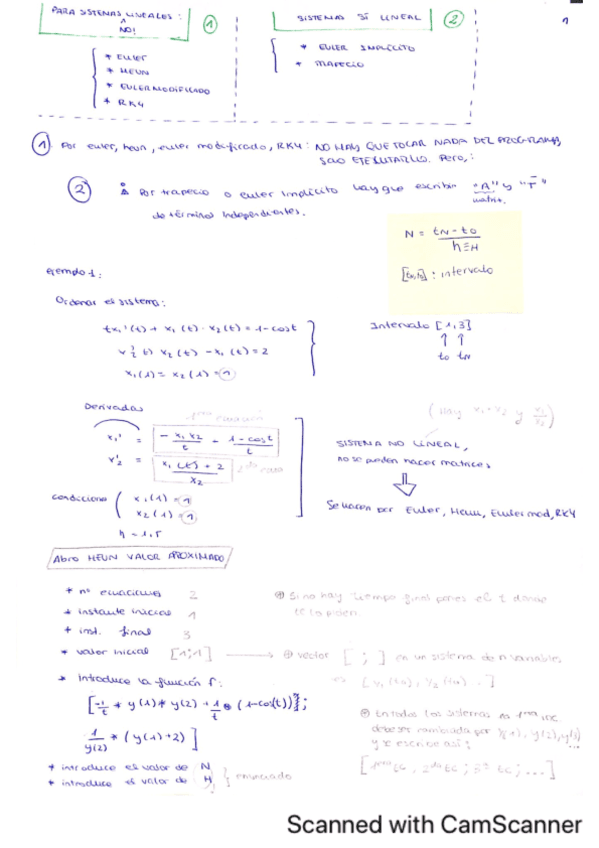 PARA SISTEMAS LINEALES: ①
NO!
* EULER
* HEUN
* EULER MODIFICADO
* RK4
SISTEMAS SÍ LINEAL ②
* EULER IMPLÍCITO
* TRAPECIO
1
① Por euler, heun, euler modificado, RK4: NO HAY QUE TOCAR NADA DEL PROGRAMA,
SOLO EJECUTARLO. Pero,:
② Por trapecio o euler implícito hay que escribir "A" y "F"
matriz
de términos independientes.
N = tN - t0 / h≡H
[t0,tN] : intervalo
ejemplo 1:
Ordenar el sistema:
tx₁'(t) + x₁(t)·x₂(t) = 1-cost
x₂'(t) x₂(t) - x₁(t) = 2
x₁(1) = x₂(1) = 1
Intervalo [1,3]
↑ ↑
to tN
Derivadas
1ªra ecuación
x₁' = - x₁x₂ / t - 1-cost / t
x₂' = x₁(t) + 2 / x₂
(Hay x₁·x₂ y x₁/x₂)
SISTEMA NO LINEAL,
no se pueden hacer matrices
Se hacen por Euler, Heun, Euler mod, RK4
condiciones ( x₁(1) = 1
x₂(1) = 1
h = 1,5
ABRO HEUN VALOR APROXIMADO
* nº ecuaciones 2
* instante inicial 1
* inst. final 3
* valor inicial [1;1] → vector [ ; ] en un sistema de n variables
⊕ Si no hay tiempo final pones el t donde
te lo piden
es [y₁(t0), y₂(t0)...]
* introduce la función f:
[-1/t * y(1)*y(2) + 1/t * (1-cos(t));
1/y(2) * (y(1)+2)]
⊕ En todos los sistemas la 1ªra
debe ser cambiada por y(1), y(2), y(3)
y se escribe así:
[1ªra ec, 2da ec; 3ª ec; ...]
* introduce el valor de N
* introduce el valor de H } enunciado
Scanned with CamScanner